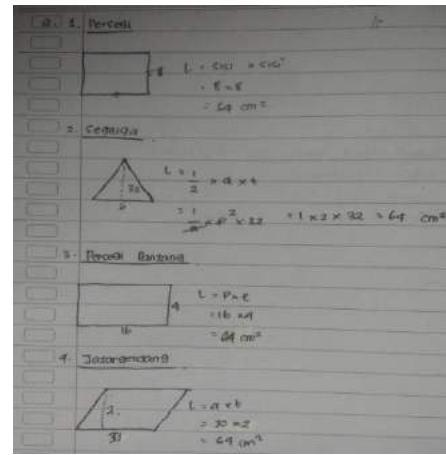 1. Persegi
8
L = sisi x sisi
= 8 x 8
= 64 cm²
2. Segitiga
32
L = 1/2 x a x t
= 1/2 x 4² x 32 = 1 x 2 x 32 = 64 cm²
3. Persegi Panjang
4
16
L = p x l
= 16 x 4
= 64 cm²
4. Jajargenjang
2
L = a x t
= 30 x 2
30
= 64 cm²